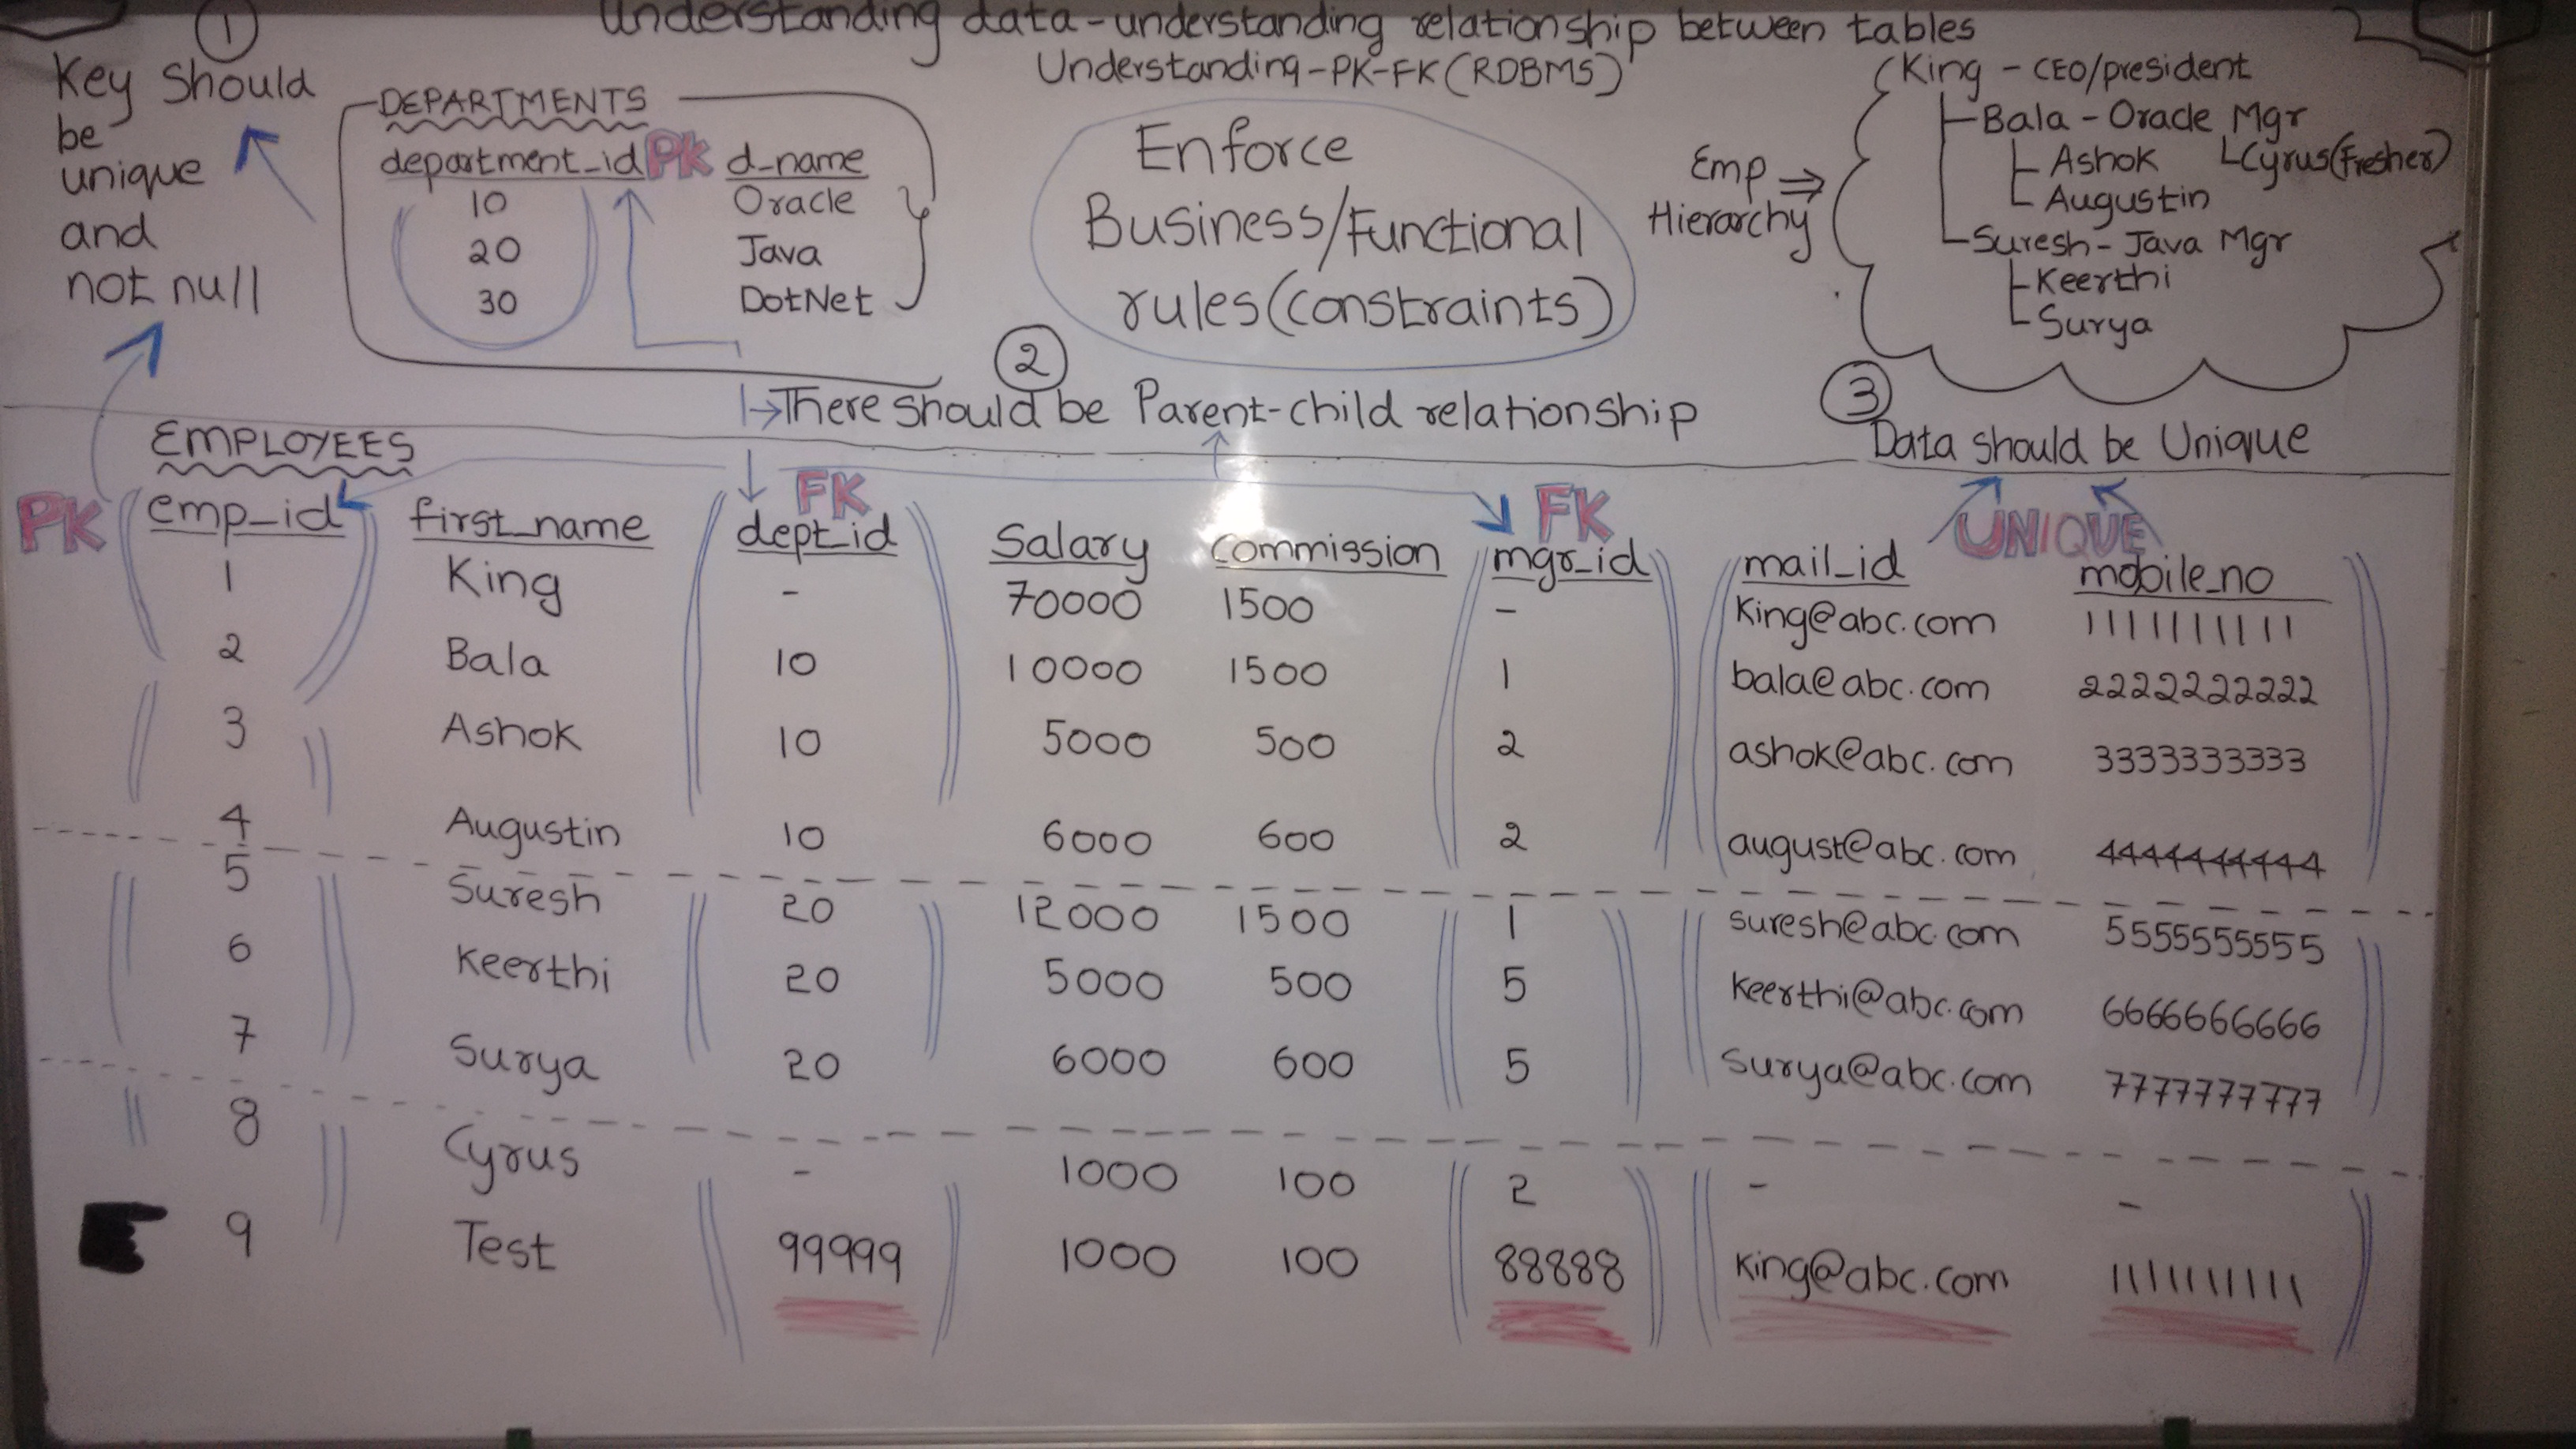 Understanding data-understanding relationship between tables
Understanding-PK-FK(RDBMS)
1
Key Should
be
unique
and
not null
DEPARTMENTS
department_id PK d_name
10 Oracle
20 Java
30 DotNet
Enforce
Business/Functional
rules(constraints)
Emp
Hierarchy
King - CEO/president
Bala - Oracle Mgr
Ashok Cyrus(Fresher)
Augustin
Suresh - Java Mgr
Keerthi
Surya
2
There should be Parent-child relationship
3
Data should be Unique
EMPLOYEES
PK FK FK UNIQUE
emp_id first_name dept_id Salary commission mgr_id mail_id mobile_no
1 King - 70000 1500 - King@abc.com 1111111111
2 Bala 10 10000 1500 1 bala@abc.com 2222222222
3 Ashok 10 5000 500 2 ashok@abc.com 3333333333
4 Augustin 10 6000 600 2 august@abc.com 4444444444
5 Suresh 20 12000 1500 1 suresh@abc.com 5555555555
6 Keerthi 20 5000 500 5 keerthi@abc.com 6666666666
7 Surya 20 6000 600 5 Surya@abc.com 7777777777
8 Cyrus - 1000 100 2 - -
9 Test 99999 1000 100 88888 King@abc.com 1111111111